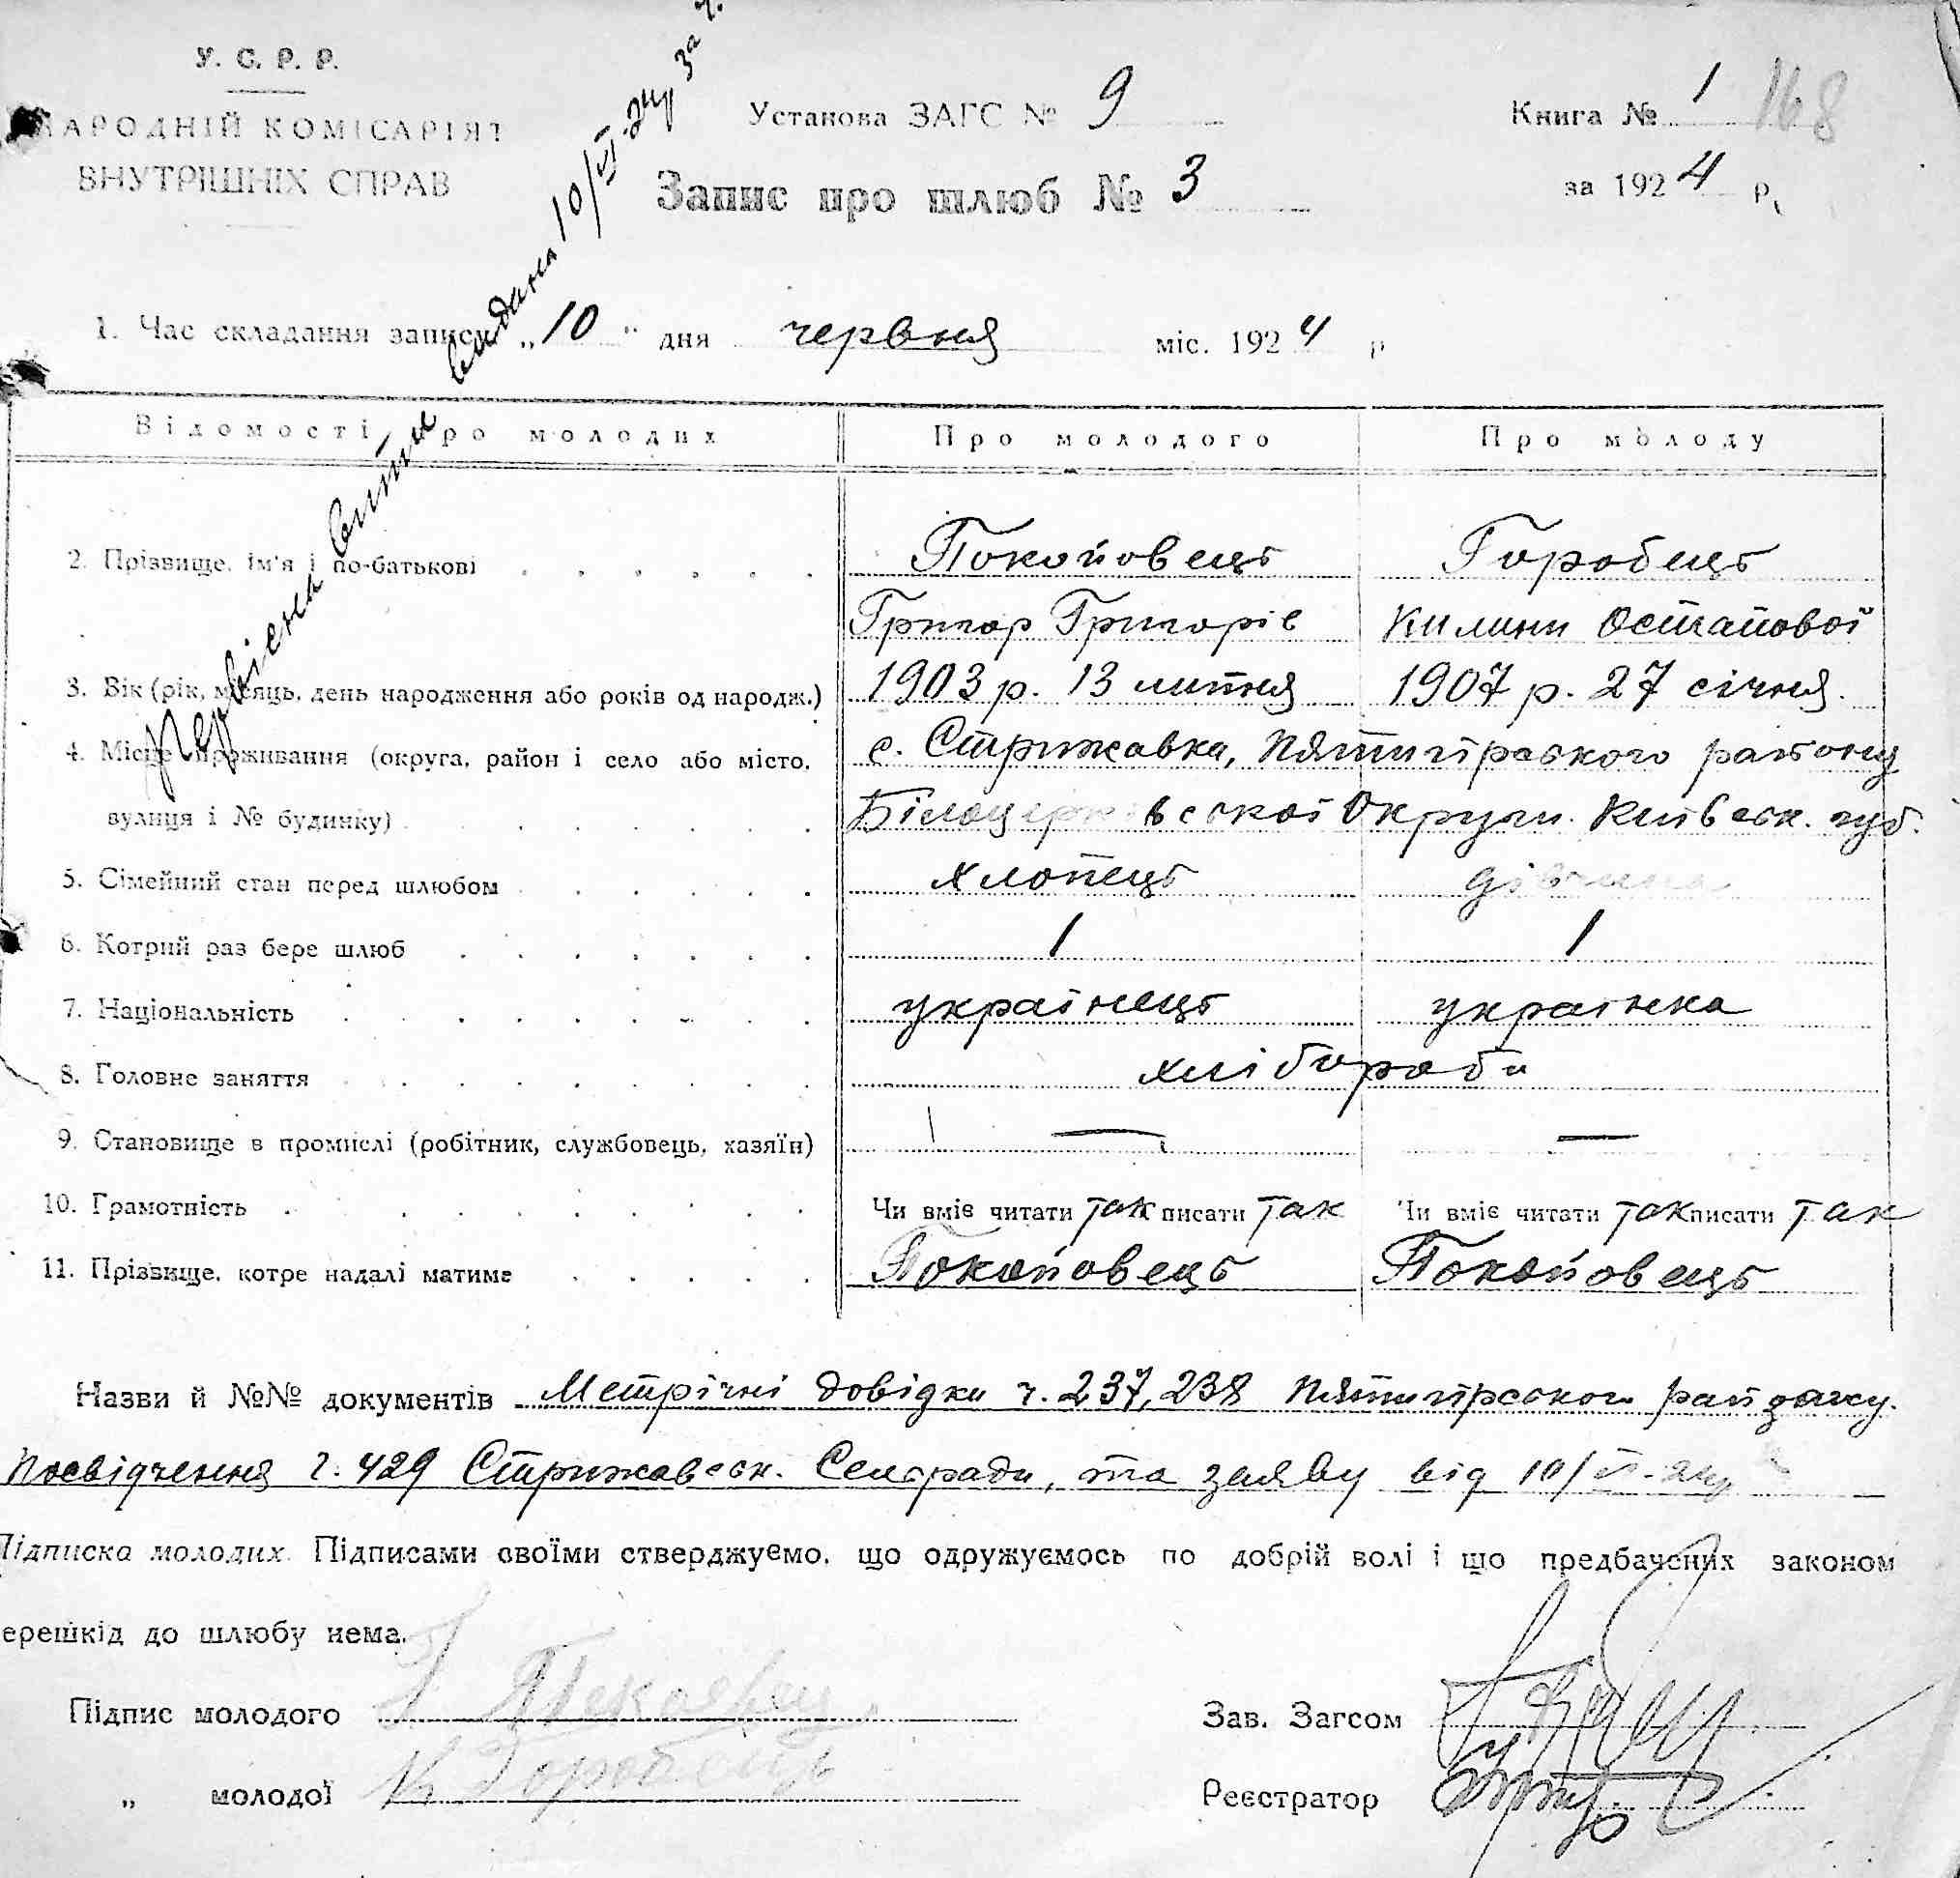 У. С. Р. Р.
НАРОДНІЙ КОМІСАРІЯТ
ВНУТРІШНІХ СПРАВ
Установа ЗАГС № 9
Книга № 1 168
Запис про шлюб № 3
за 1924 р.
1. Час складання запису „10“ дня червня міс. 1924 р
видана 10/VI-24р за ч.
Відомості про молодих Про молодого Про молоду
2. Прізвище, ім'я і по-батькові Покойовець Горобець
Григор Григорів Килини Остапової
3. Вік (рік, місяць, день народження або років од народж.) 1903 р. 13 липня 1907 р. 27 січня.
4. Місце проживання (округа, район і село або місто, с. Стрижавка, Пятигірського району
вулиця і № будинку) Білоцерковської Округи. Київськ. губ.
5. Сімейний стан перед шлюбом хлопець дівчина
6. Котрий раз бере шлюб 1 1
7. Національність українець українка
8. Головне заняття хлібороби
9. Становище в промислі (робітник, службовець, хазяїн) — —
10. Грамотність Чи вміє читати так писати так Чи вміє читати так писати так
11. Прізвище, котре надалі матиме Покойовець Покойовець
Назви й №№ документів Метрічні довідки ч. 237, 238 Пятигірського райзагсу.
Посвідчення ч. 429 Стрижавськ. Сельради, та заяву від 10/VI-24р
Підписка молодих. Підписами своїми стверджуємо, що одружуємось по добрій волі і що предбачених законом
перешкід до шлюбу нема.
Підпис молодого
Зав. Загсом
„ молодої К Горобець
Реєстратор